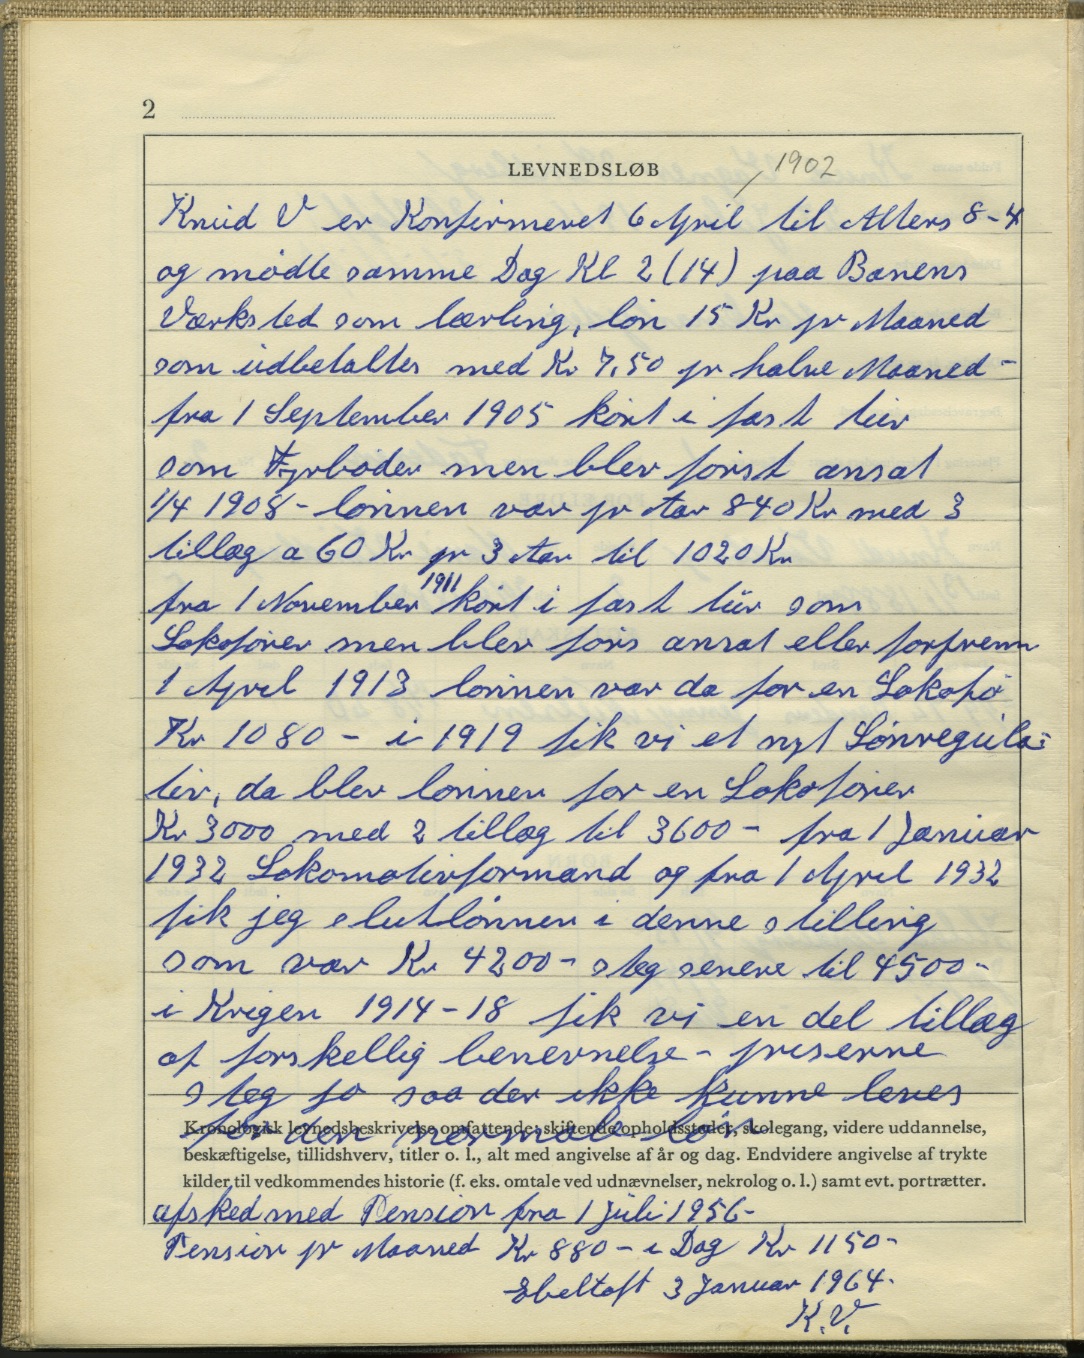 2
LEVNEDSLØB
1902
Knud V er Konfirmeret 6 April til Alters 8-4
og mødte samme Dag Kl 2 (14) paa Banens
Værksted som lærling, løn 15 Kr pr Maaned
som udbetaltes med Kr 7,50 pr halve Maaned -
fra 1 September 1905 kørt i fast tur
som Fyrbøder men blev først ansat
1/4 1908 - lønnen var pr Aar 840 Kr med 3
tillæg a 60 Kr pr 3 Aar til 1020 Kr
1911
fra 1 November kørt i fast tur som
Lokofører men blev førs ansat eller forfrem
1 April 1913 lønnen var da for en Lokofø
Kr 1080 - i 1919 fik vi et nyt Lønregula=
tiv, da blev lønnen for en Lokofører
Kr 3000 med 2 tillæg til 3600 - fra 1 Januar
1932 Lokomotivformand og fra 1 April 1932
fik jeg slutlønnen i denne stilling
som var Kr 4200 - steg senere til 4500 -
i Krigen 1914-18 fik vi en del tillæg
af forskellig benevnelse - priserne
steg jo saa der ikke kunne leves
for den normale løn
Kronologisk levnedsbeskrivelse omfattende: skiftende opholdssteder, skolegang, videre uddannelse,
beskæftigelse, tillidshverv, titler o. l., alt med angivelse af år og dag. Endvidere angivelse af trykte
kilder til vedkommendes historie (f. eks. omtale ved udnævnelser, nekrolog o. l.) samt evt. portrætter.
afsked med Pension fra 1 Juli 1956 -
Pension pr Maaned Kr 880 - i Dag Kr 1150 -
Ebeltoft 3 Januar 1964.
K. V.